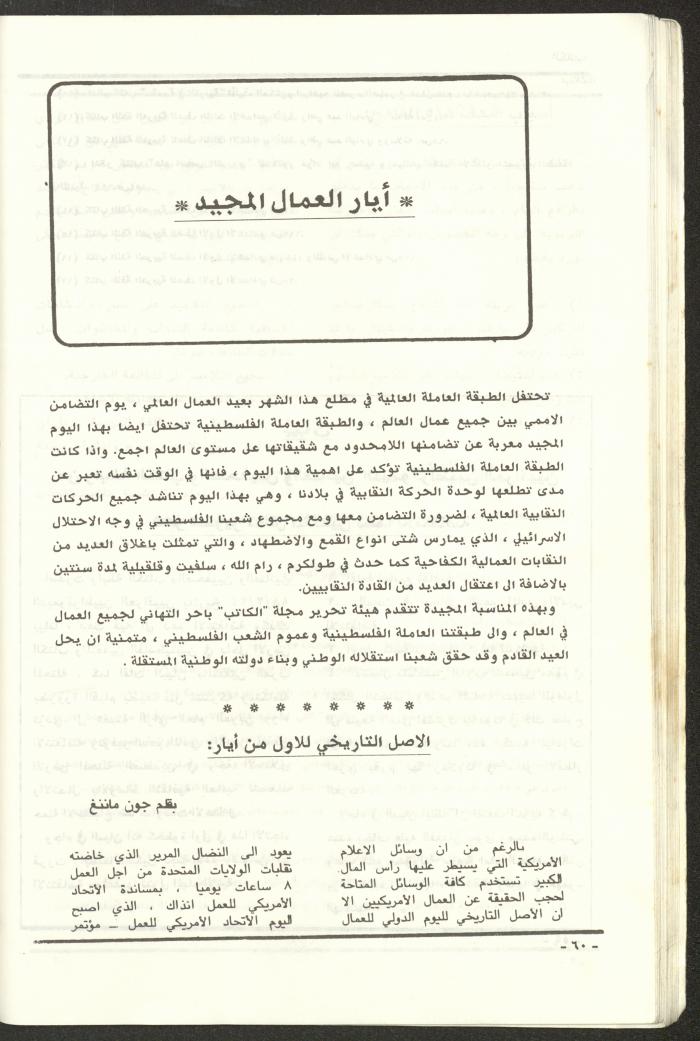 * أيار العمال المجيد *
تحتفل الطبقة العاملة العالمية في مطلع هذا الشهر بعيد العمال العالمي ، يوم التضامن
الاممي بين جميع عمال العالم ، والطبقة العاملة الفلسطينية تحتفل ايضا بهذا اليوم
المجيد معربة عن تضامنها اللامحدود مع شقيقاتها على مستوى العالم اجمع. واذا كانت
الطبقة العاملة الفلسطينية تؤكد على اهمية هذا اليوم ، فانها في الوقت نفسه تعبر عن
مدى تطلعها لوحدة الحركة النقابية في بلادنا ، وهي بهذا اليوم تناشد جميع الحركات
النقابية العالمية ، لضرورة التضامن معها ومع مجموع شعبنا الفلسطيني في وجه الاحتلال
الاسرائيلي ، الذي يمارس شتى انواع القمع والاضطهاد ، والتي تمثلت باغلاق العديد من
النقابات العمالية الكفاحية كما حدث في طولكرم ، رام الله ، سلفيت وقلقيلية لمدة سنتين
بالاضافة الى اعتقال العديد من القادة النقابيين.
وبهذه المناسبة المجيدة تتقدم هيئة تحرير مجلة "الكاتب" باحر التهاني لجميع العمال
في العالم ، والى طبقتنا العاملة الفلسطينية وعموم الشعب الفلسطيني ، متمنية ان يحل
العيد القادم وقد حقق شعبنا استقلاله الوطني وبناء دولته الوطنية المستقلة .
* * * * * * * * *
الاصل التاريخي للاول من أيار:
بقلم جون ماننغ
بالرغم من ان وسائل الاعلام
الأمريكية التي يسيطر عليها رأس المال
الكبير تستخدم كافة الوسائل المتاحة
لحجب الحقيقة عن العمال الأمريكيين الا
ان الأصل التاريخي لليوم الدولي للعمال
يعود الى النضال المرير الذي خاضته
نقابات الولايات المتحدة من اجل العمل
٨ ساعات يوميا ، بمساندة الأتحاد
الأمريكي للعمل انذاك ، الذي اصبح
اليوم الأتحاد الأمريكي للعمل ــ مؤتمر
- ٦٠ -